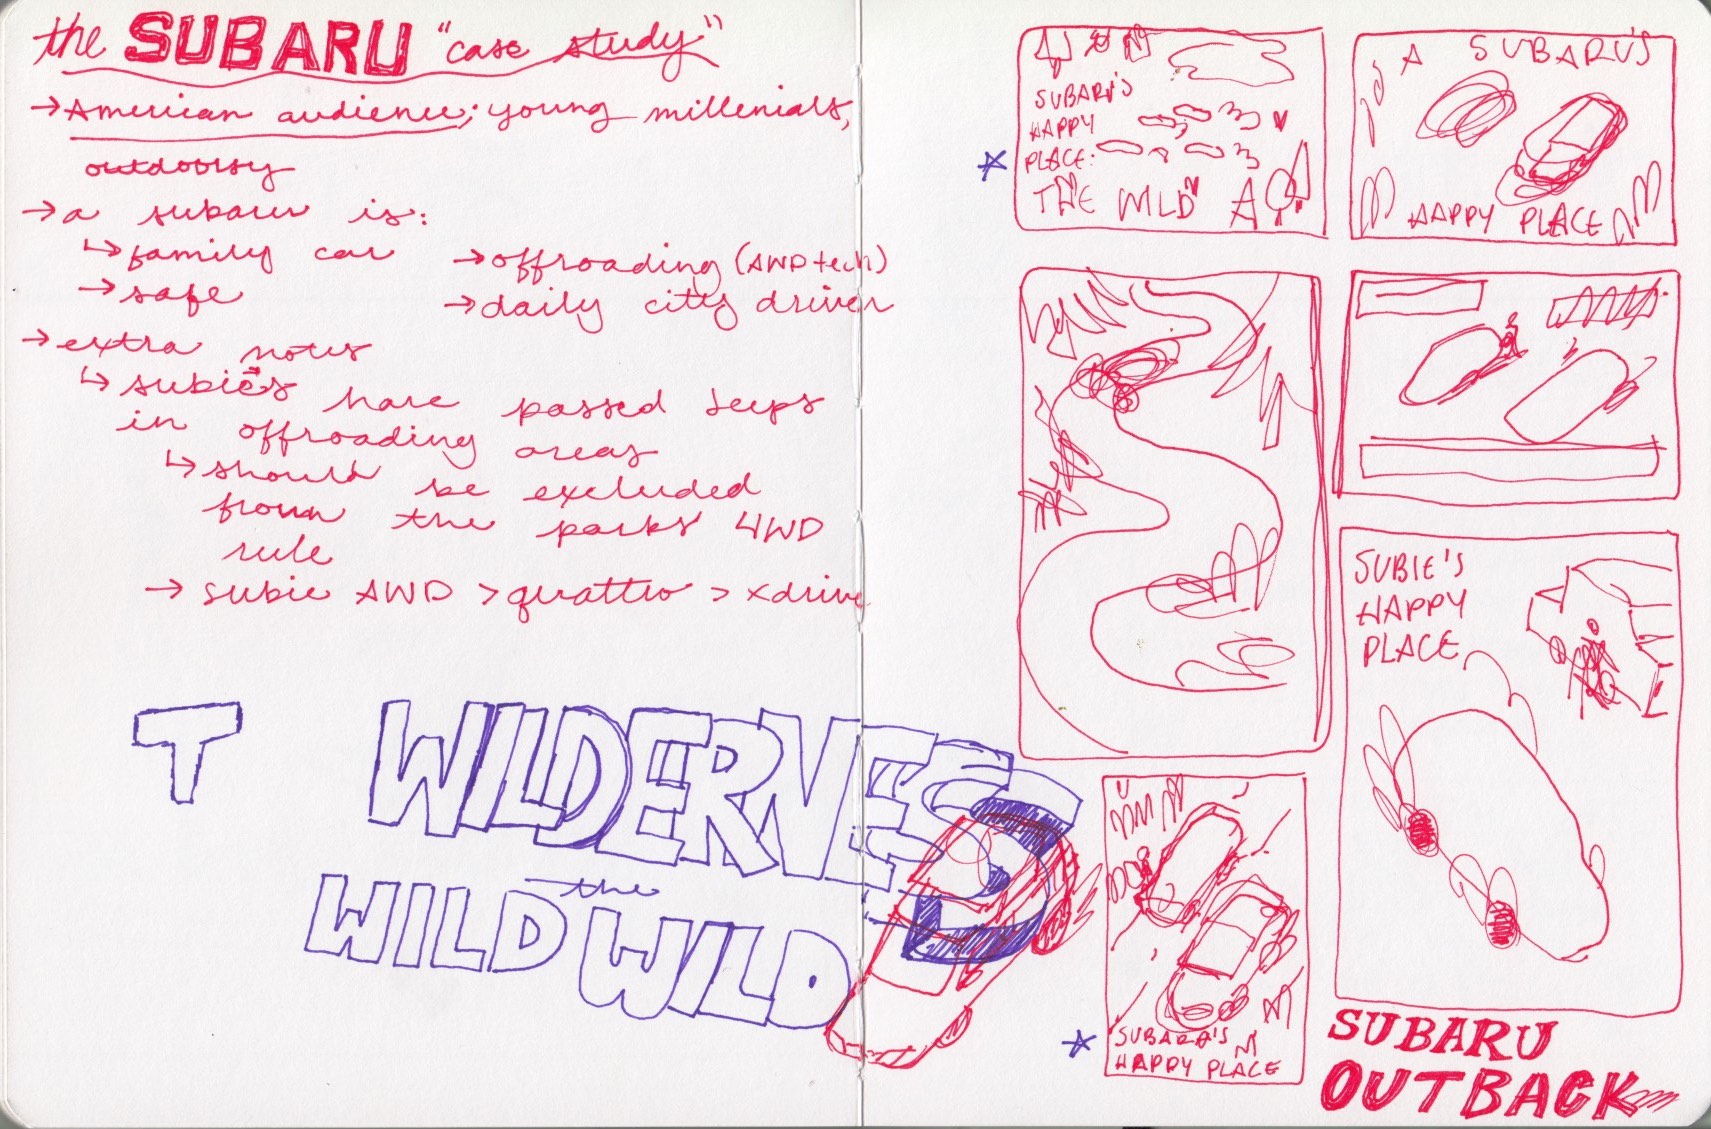 the SUBARU "case study"
→ American audience; young millenials,
outdoorsy
→ a subaru is:
↳ family car
→ safe
→ offroading (AWD tech)
→ daily city driver
→ extra notes
↳ subie's have passed Jeeps
in offroading areas
↳ should be excluded
from the parks 4WD
rule
→ subie AWD > quattro > xdrive
T
WILDERNESS
the
WILD WILD
SUBARU'S
HAPPY
PLACE:
THE WILD
A SUBARU'S
HAPPY PLACE
SUBIE'S
HAPPY
PLACE
SUBARU'S
HAPPY PLACE
SUBARU
OUTBACK